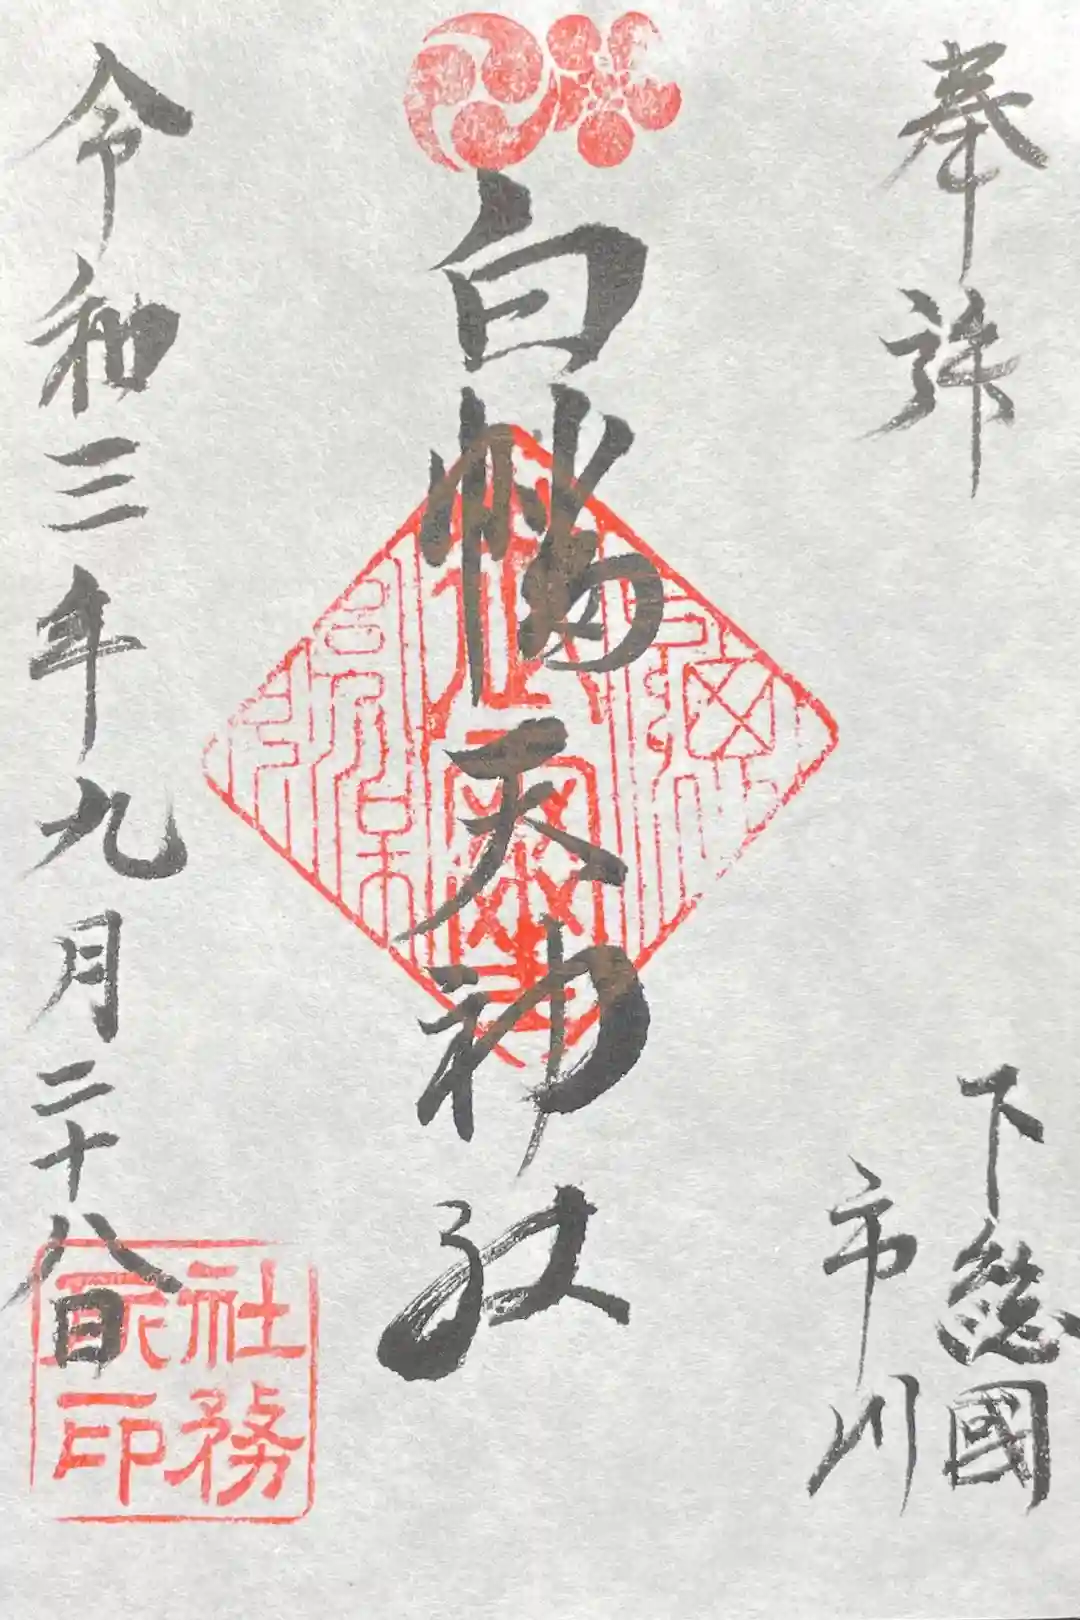 奉拝
下総國
市川
白幡天神社
令和三年九月二十八日
社務
之印